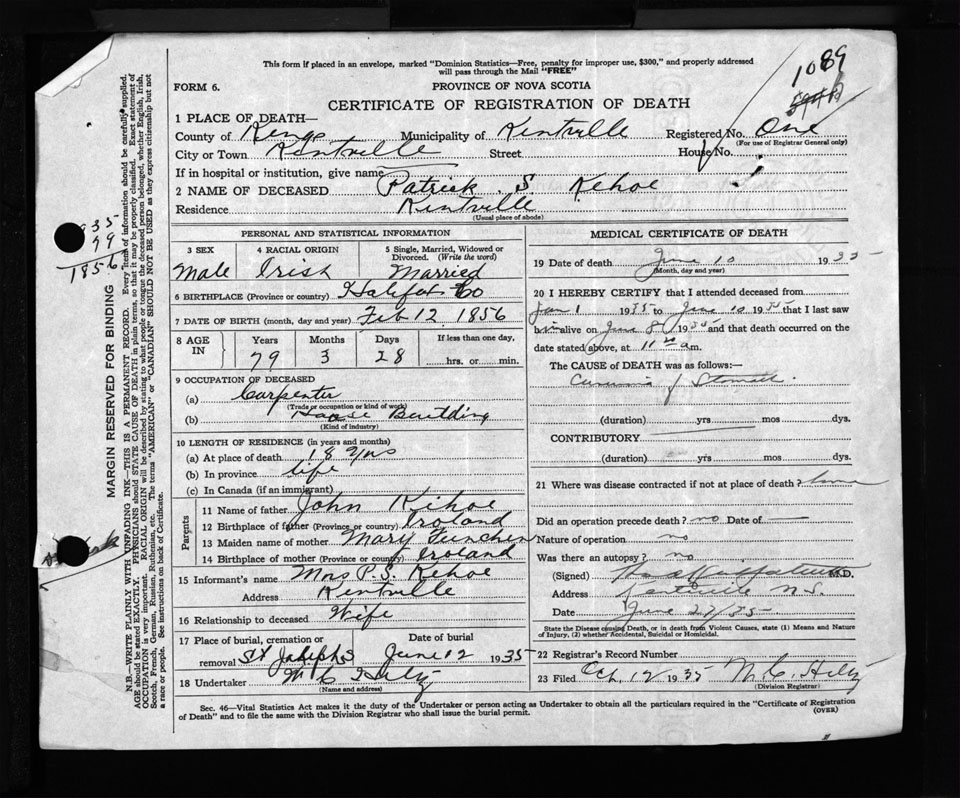 This form if placed in an envelope, marked "Dominion Statistics—Free, penalty for improper use, $300," and properly addressed
will pass through the Mail "FREE"
1089
FORM 6.
PROVINCE OF NOVA SCOTIA
CERTIFICATE OF REGISTRATION OF DEATH
1 PLACE OF DEATH—
County of Kings Municipality of Kentville Registered No. One
(For use of Registrar General only)
City or Town Kentville Street House No.
If in hospital or institution, give name
2 NAME OF DECEASED Patrick S Kehoe
Residence Kentville
(Usual place of abode)
PERSONAL AND STATISTICAL INFORMATION
3 SEX 4 RACIAL ORIGIN 5 Single, Married, Widowed or
Divorced. (Write the word)
Male Irish Married
6 BIRTHPLACE (Province or country) Halifax Co
7 DATE OF BIRTH (month, day and year) Feb 12 1856
8 AGE IN Years Months Days If less than one day,
79 3 28 hrs. or min.
9 OCCUPATION OF DECEASED
(a) Carpenter
(Trade or occupation or kind of work)
(b) House Building
(Kind of industry)
10 LENGTH OF RESIDENCE (in years and months)
(a) At place of death 18 yrs
(b) In province life
(c) In Canada (if an immigrant)
Parents
11 Name of father John Kihoe
12 Birthplace of father (Province or country) Iroland
13 Maiden name of mother Mary
14 Birthplace of mother (Province or country) Iroland
15 Informant's name Mrs P.S. Kehoe
Address Kentville
16 Relationship to deceased Wife
17 Place of burial, cremation or Date of burial
removal St Josephs June 12 1935
18 Undertaker M C Hiltz
(Name and address)
MEDICAL CERTIFICATE OF DEATH
19 Date of death June 10 1935
(Month, day and year)
20 I HEREBY CERTIFY that I attended deceased from
Jan 1 1935 to June 10 1935 that I last saw
him alive on June 8 1935 and that death occurred on
date stated above, at 11 am.
The CAUSE of DEATH was as follows:—
of Stomach
(duration) yrs mos dys.
CONTRIBUTORY
(duration) yrs mos dys.
21 Where was disease contracted if not at place of death?
Did an operation precede death? no Date of
Nature of operation no
Was there an autopsy? no
(Signed) M.D.
Address Kentville N.S.
Date June 27/35
State the Disease causing Death, or in death from Violent Causes, state (1) Means and Nature
of Injury, (2) whether Accidental, Suicidal or Homicidal.
22 Registrar's Record Number
23 Filed Oct. 12 1935 M. C. Hiltz
(Division Registrar)
Sec. 46—Vital Statistics Act makes it the duty of the Undertaker or person acting as Undertaker to obtain all the particulars required in the "Certificate of Registration
of Death" and to file the same with the Division Registrar who shall issue the burial permit.
(OVER)
MARGIN RESERVED FOR BINDING
N.B.—WRITE PLAINLY WITH UNFADING INK—THIS IS A PERMANENT RECORD. Every item of information should be carefully supplied.
AGE should be stated EXACTLY. PHYSICIANS should STATE CAUSE OF DEATH in plain terms, so that it may be properly classified. Exact statement of
OCCUPATION is very important. RACIAL ORIGIN will be described by stating to what people or tongue the deceased person belonged, whether English, Irish,
Scotch, French, German, Russian, Ruthenian, etc. The terms "AMERICAN" or "CANADIAN" SHOULD NOT BE USED as they express citizenship but not
a race or people. See instructions on back of Certificate.
935
79
1856